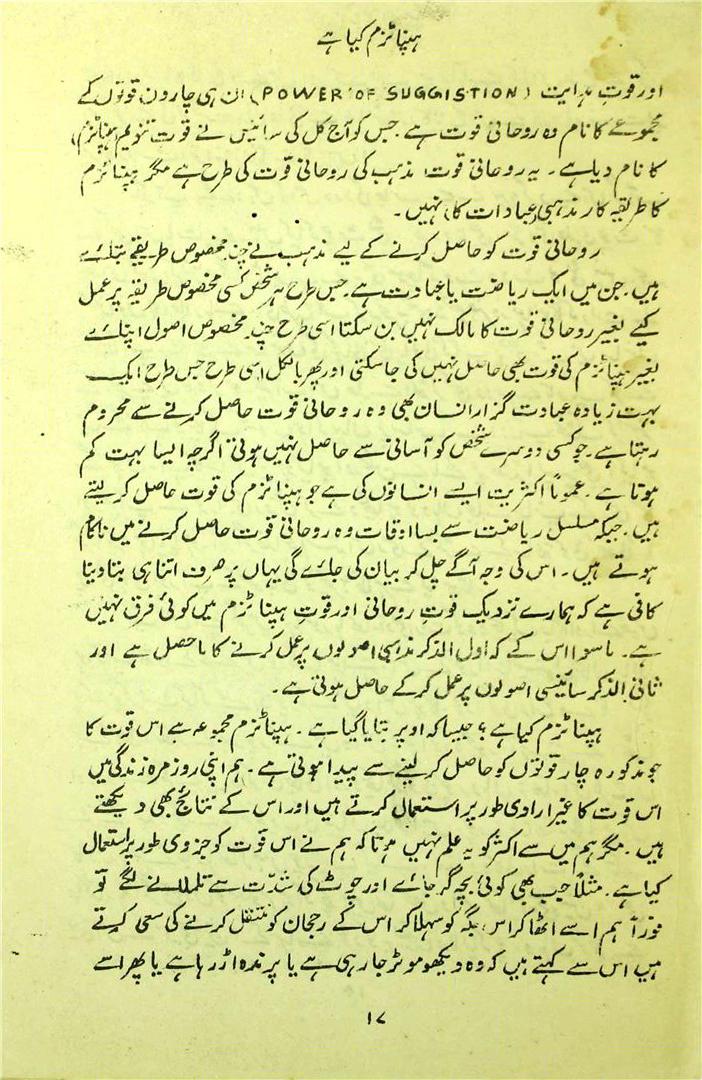 ہپناٹزم کیا ہے
اور قوتِ ہدایت (POWER OF SUGGISTION) ان ہی چارون قوتوں کے
مجموعے کا نام وہ روحانی قوت ہے جس کو آج کل کی سائنس نے قوت تنویم (ہپناٹزم)
کا نام دیا ہے۔ یہ روحانی قوت مذہب کی روحانی قوّت کی طرح ہے مگر ہپناٹزم
کا طریقہ کار مذہبی (عبادات کا) نہیں۔
روحانی قوت کو حاصل کرنے کے لیے مذہب نے چند مخصوص طریقے بتلائے
ہیں۔ جن میں ایک ریاضت یا عبادت ہے۔ جس طرح ہر شخص کسی مخصوص طریقہ پر عمل
کیے بغیر روحانی قوت کا مالک نہیں بن سکتا اسی طرح چند مخصوص اصول اپنائے
بغیر ہپناٹزم کی قوت بھی حاصل نہیں کی جا سکتی اور پھر بالکل اسی طرح جس طرح ایک
بہت زیادہ عبادت گزار انسان بھی وہ روحانی قوت حاصل کرنے سے محروم
رہتا ہے۔ جو کسی دوسرے شخص کو آسانی سے حاصل نہیں ہوتی اگرچہ ایسا بہت کم
ہوتا ہے۔ عموماً اکثریت ایسے انسانوں کی ہے جو ہپناٹزم کی قوت حاصل کر لیتے
ہیں۔ جبکہ مسلسل ریاضت سے بسا اوقات وہ روحانی قوت حاصل کرنے میں ناکام
ہوتے ہیں۔ اس کی وجہ آگے چل کر بیان کی جائے گی یہاں پر صرف اتنا ہی بتا دینا
کافی ہے کہ ہمارے نزدیک قوتِ روحانی اور قوتِ ہپناٹزم میں کوئی فرق نہیں
ہے۔ ماسوا اس کے کہ اول الذکر مذہبی اصولوں پر عمل کرنے کا ماحصل ہے اور
ثانی الذکر سائنسی اصولوں پر عمل کر کے حاصل ہوتی ہے۔
ہپناٹزم کیا ہے؟ جیسا کہ اوپر بتایا گیا ہے۔ ہپناٹزم مجموعہ ہے اس قوت کا
جو مذکورہ چار قوتوں کو حاصل کر لینے سے پیدا ہوتی ہے۔ ہم اپنی روز مرہ زندگی میں
اس قوت کا غیر ارادی طور پر استعمال کرتے ہیں اور اس کے نتائج بھی دیکھتے
ہیں۔ مگر ہم میں سے اکثر کو یہ علم نہیں ہوتا کہ ہم نے اس قوت کو جزوی طور پر استعمال
کیا ہے۔ مثلاً جب بھی کوئی بچہ گر جائے اور چوٹ کی شدّت سے تلملانے لگے تو
فوراً ہم اسے اٹھا کر اس جگہ کو سہلا کر اس کے رجحان کو منتقل کرنے کی سعی کرتے
ہیں اس سے کہتے ہیں کہ وہ دیکھو موٹر جا رہی ہے یا پرندہ اڑ رہا ہے یا پھر اسے
۱۷